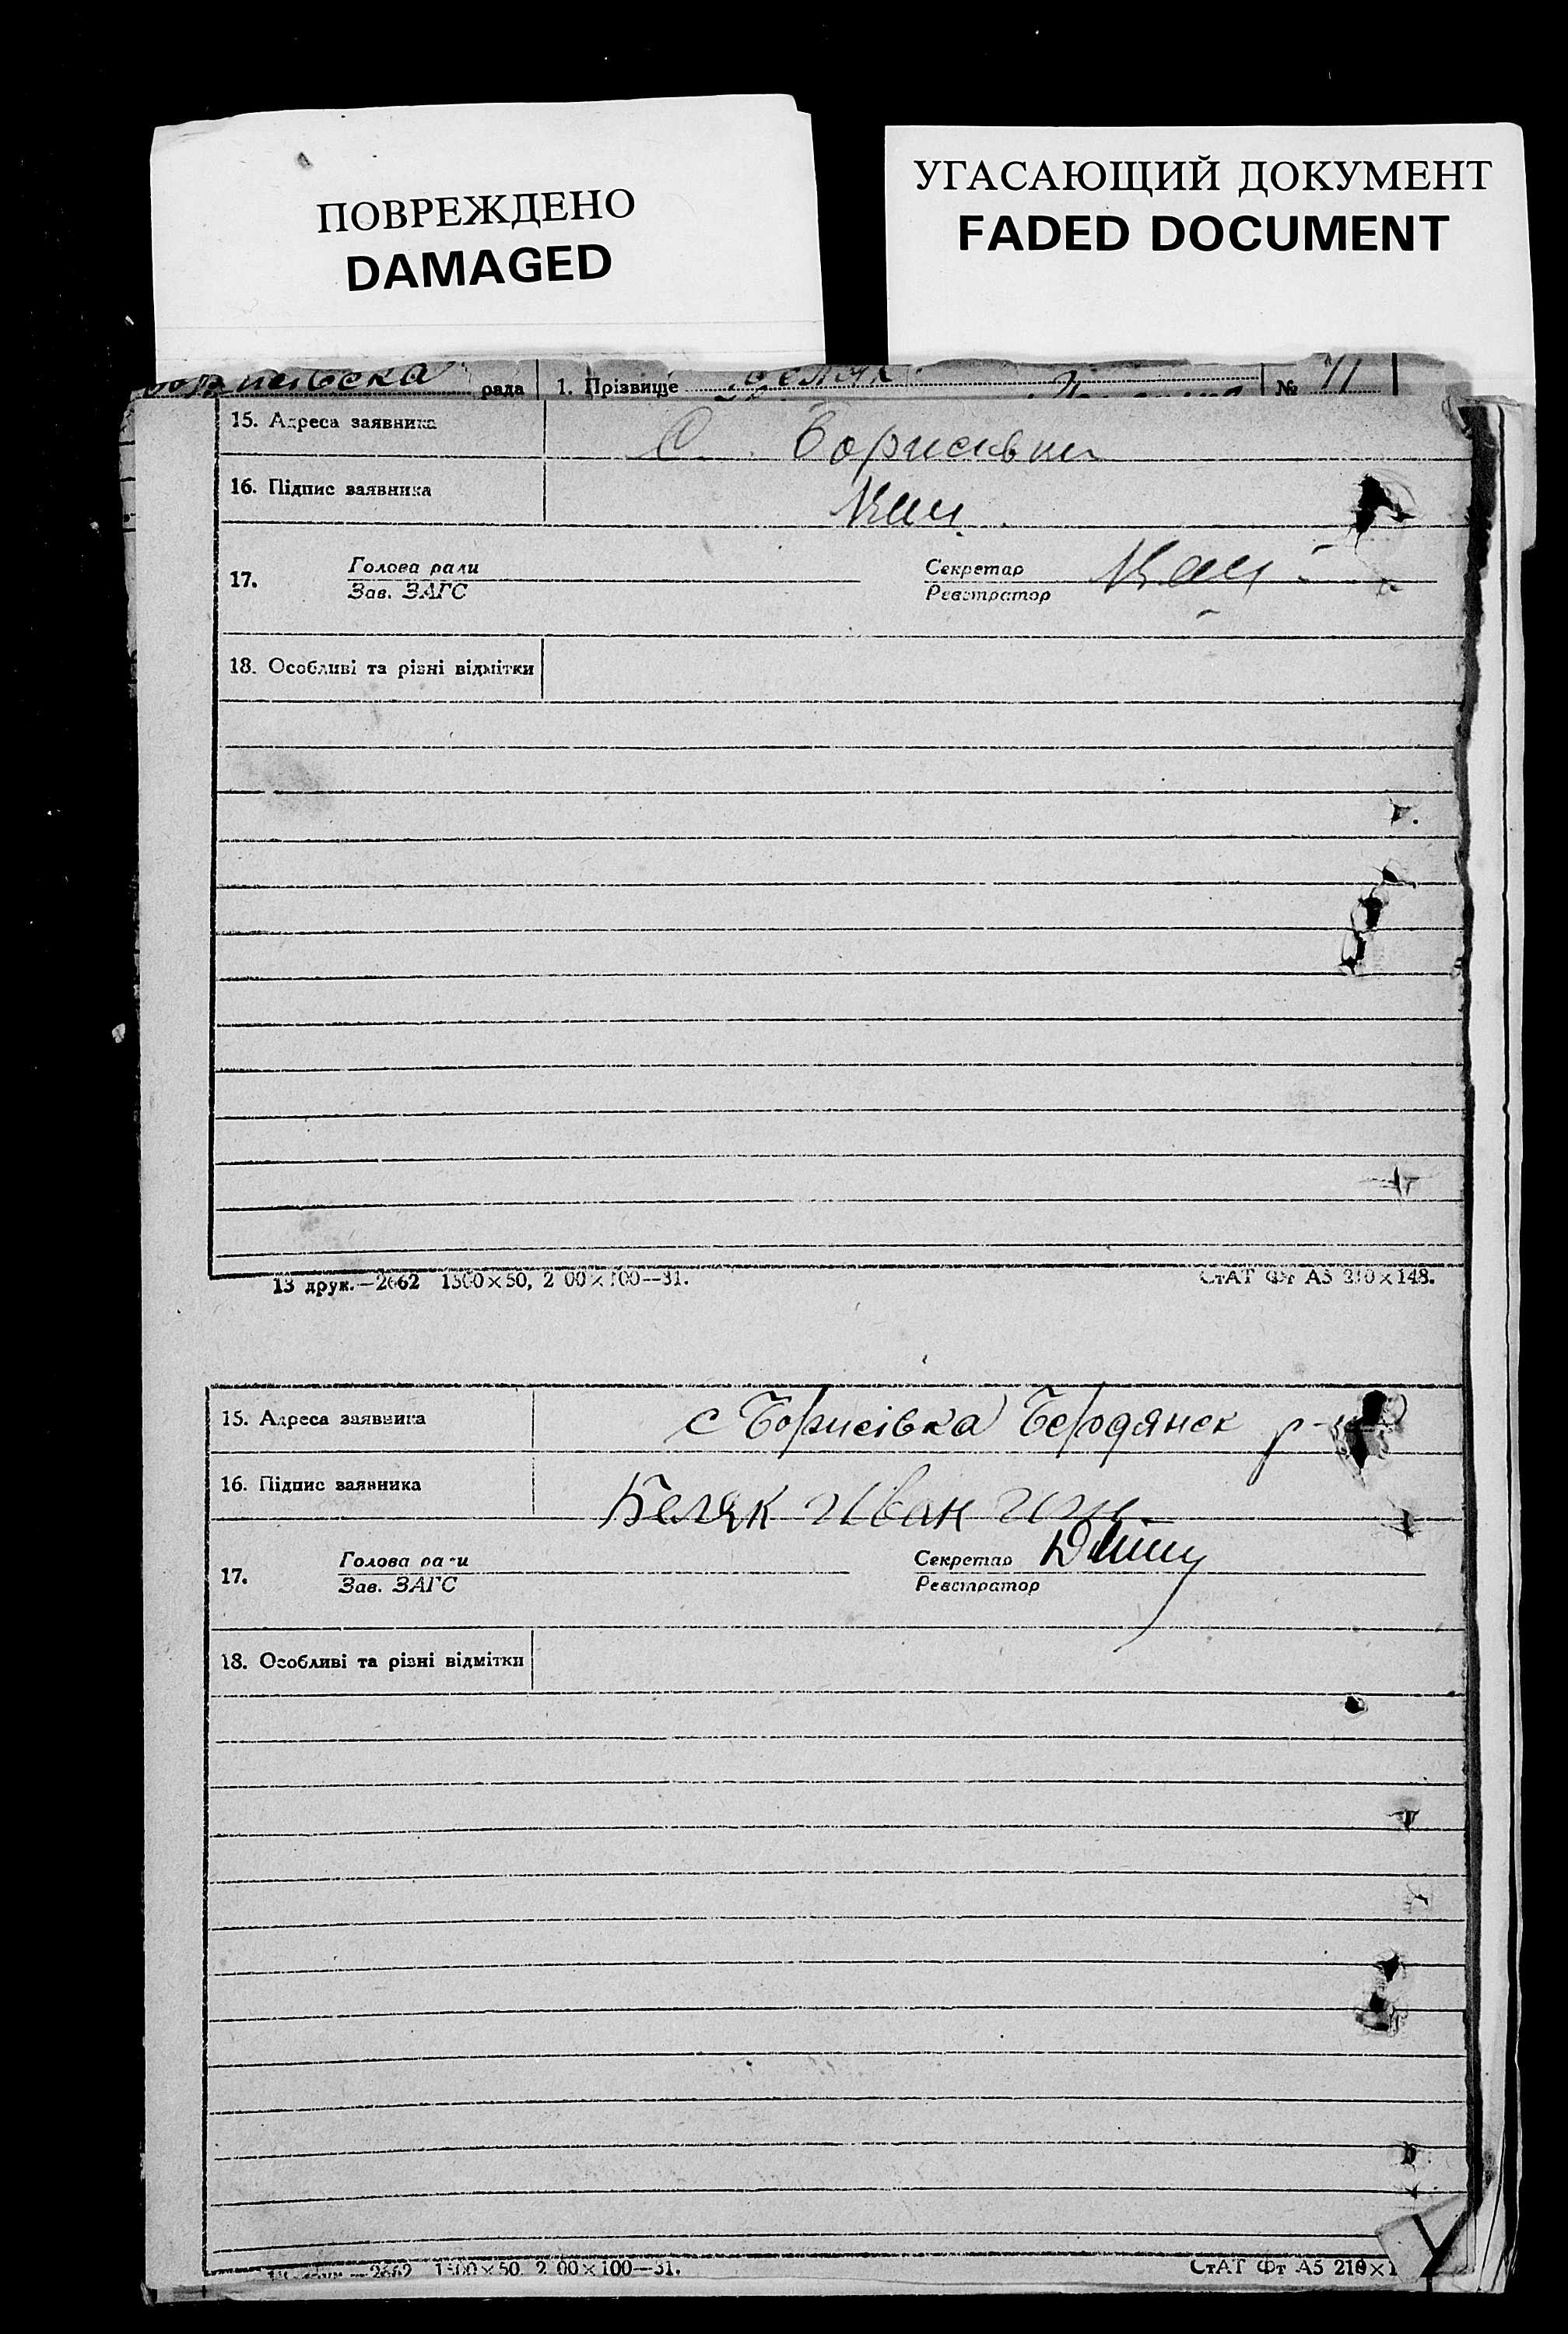 ПОВРЕЖДЕНО
DAMAGED
УГАСАЮЩИЙ ДОКУМЕНТ
FADED DOCUMENT
рада 1. Прізвище №
15. Адреса заявника С. Борисівка
16. Підпис заявника
17. Голова ради
Зав. ЗАГС
Секретар
Реєстратор
18. Особливі та різні відмітки
13 друк.—2662 1500×50, 2 00×100—31.
СтАТ Фт А5 210×148.
15. Адреса заявника с Борисівка Бердянск р-
16. Підпис заявника Беляк Иван
17. Голова ради
Зав. ЗАГС
Секретар
Реєстратор
18. Особливі та різні відмітки
2662 1500×50, 2 00×100—31.
СтАТ Фт А5 210×1